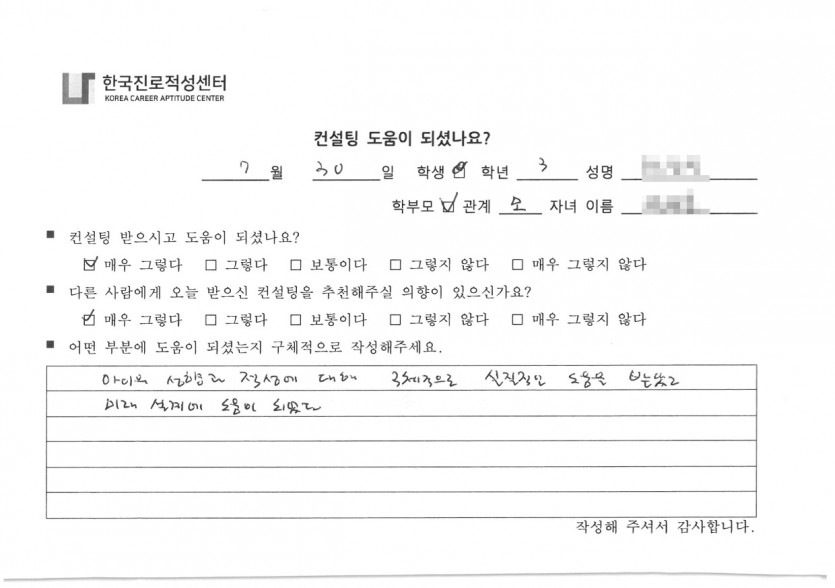 한국진로적성센터
KOREA CAREER APTITUDE CENTER
컨설팅 도움이 되셨나요?
7 월 30 일 학생 ☑ 학년 3 성명
학부모 ☑ 관계 모 자녀 이름
■ 컨설팅 받으시고 도움이 되셨나요?
☑ 매우 그렇다 □ 그렇다 □ 보통이다 □ 그렇지 않다 □ 매우 그렇지 않다
■ 다른 사람에게 오늘 받으신 컨설팅을 추천해주실 의향이 있으신가요?
☑ 매우 그렇다 □ 그렇다 □ 보통이다 □ 그렇지 않다 □ 매우 그렇지 않다
■ 어떤 부분에 도움이 되셨는지 구체적으로 작성해주세요.
아이의 성향과 적성에 대해 구체적으로 실질적인 도움을
미래 설계에 도움이 되었다
작성해 주셔서 감사합니다.